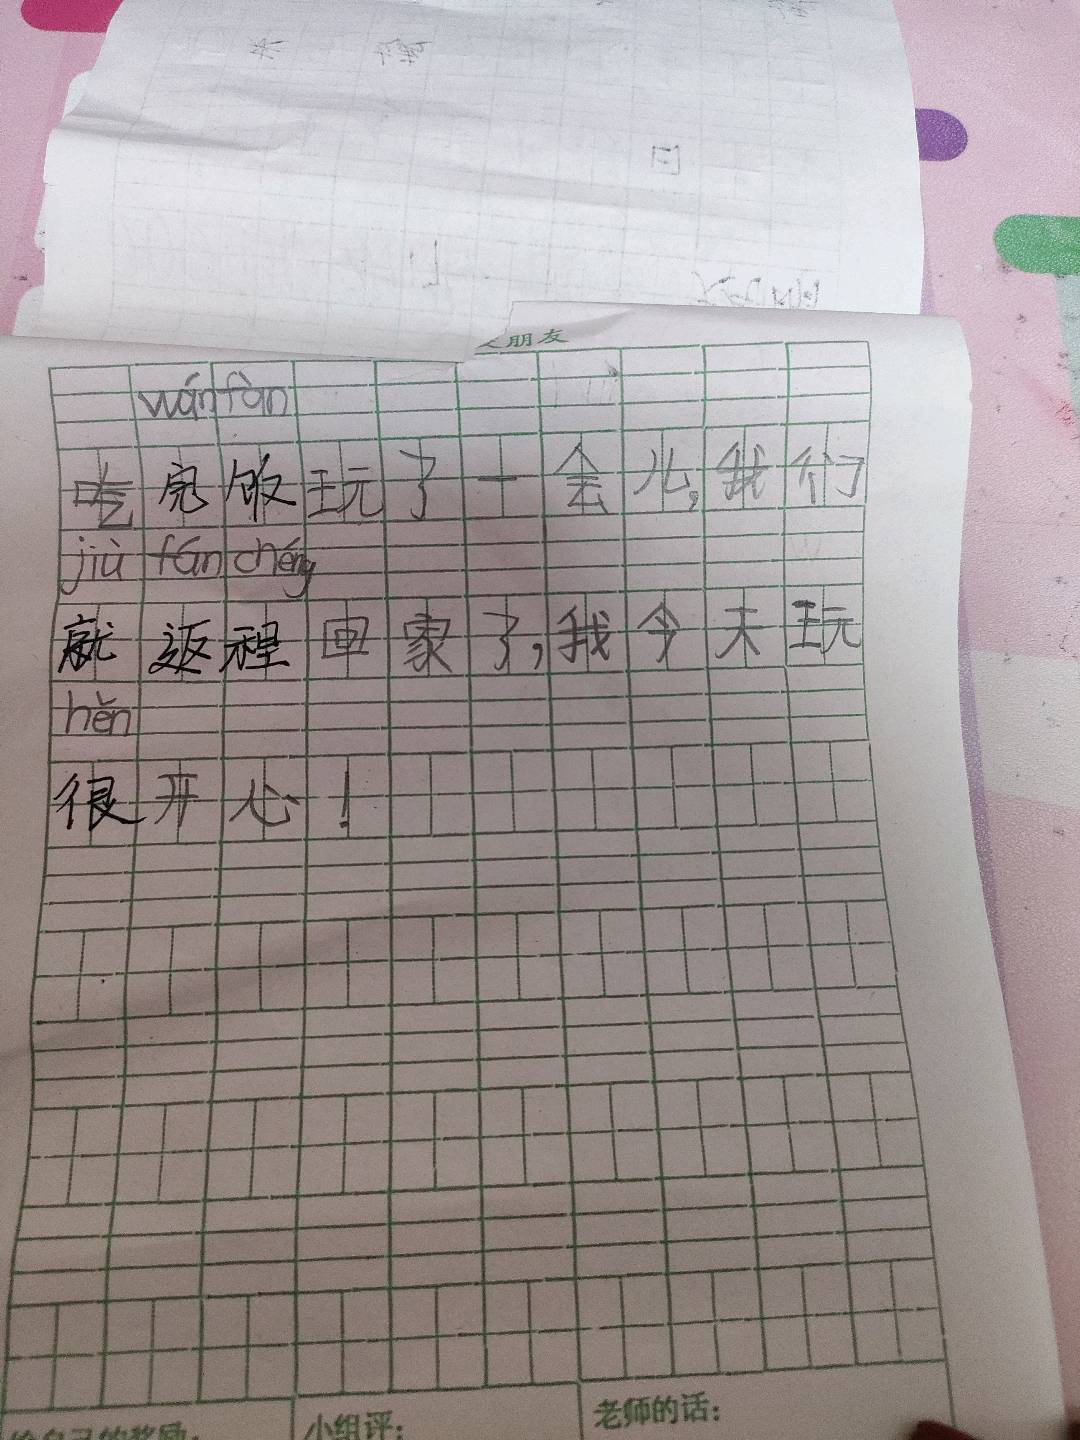 朋友
wán fàn
吃完饭玩了一会儿,我们
jiù fán chéng
就返程回家了,我今天玩
hěn
很开心!
给自己的奖励: 小组评: 老师的话: